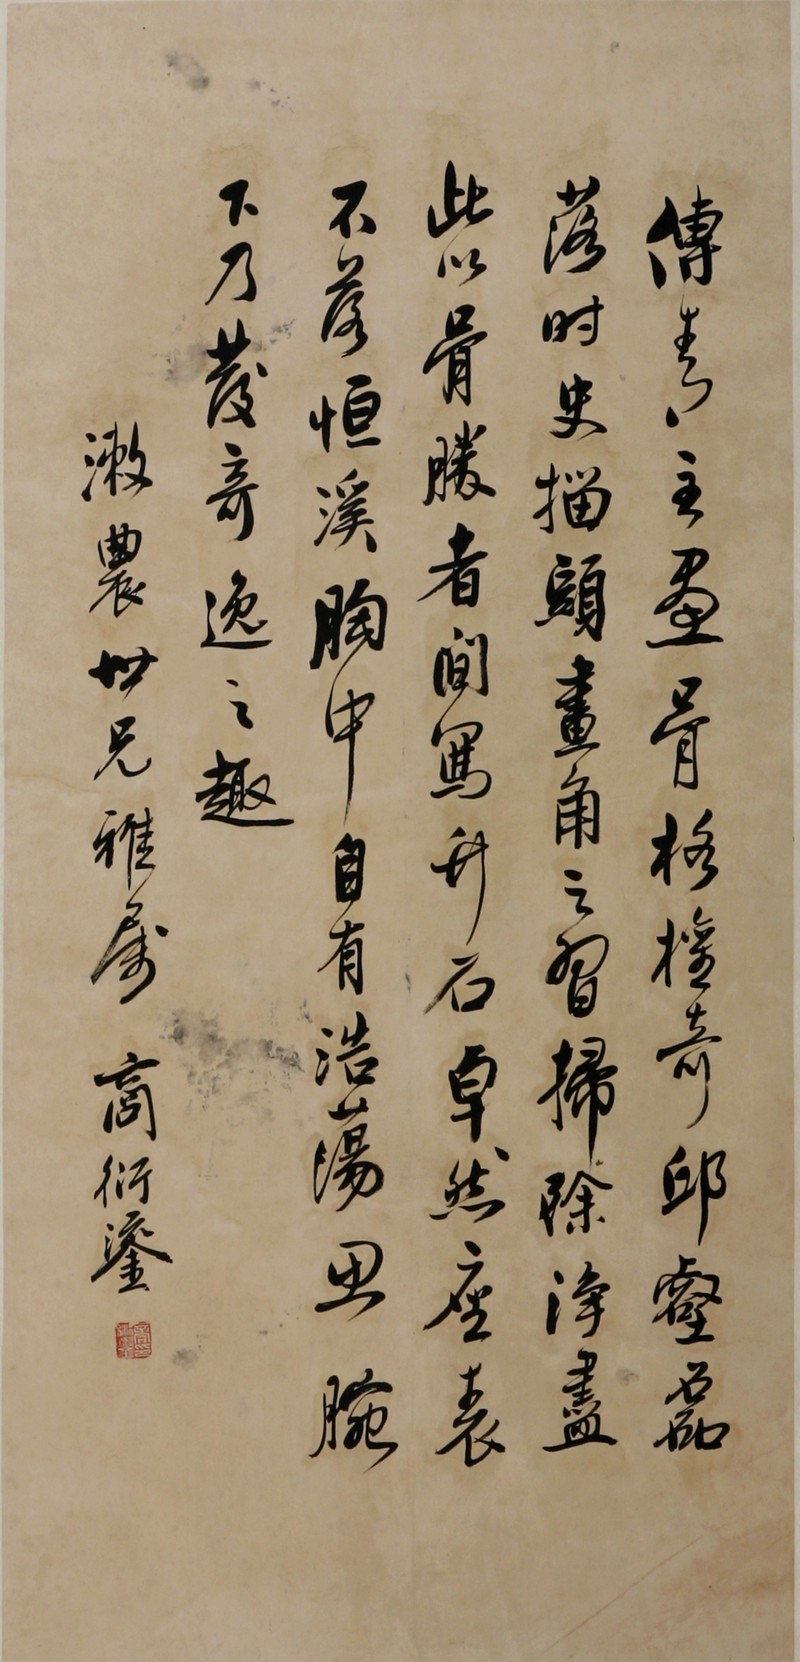 傅青主畫骨格權奇邱壑磊
落时史描頭畫角之習掃除淨盡
此以骨勝者间寫竹石卓然座表
不落恒溪胸中自有浩蕩思腕
下乃發奇逸之趣
漱農世兄雅属 商衍鎏